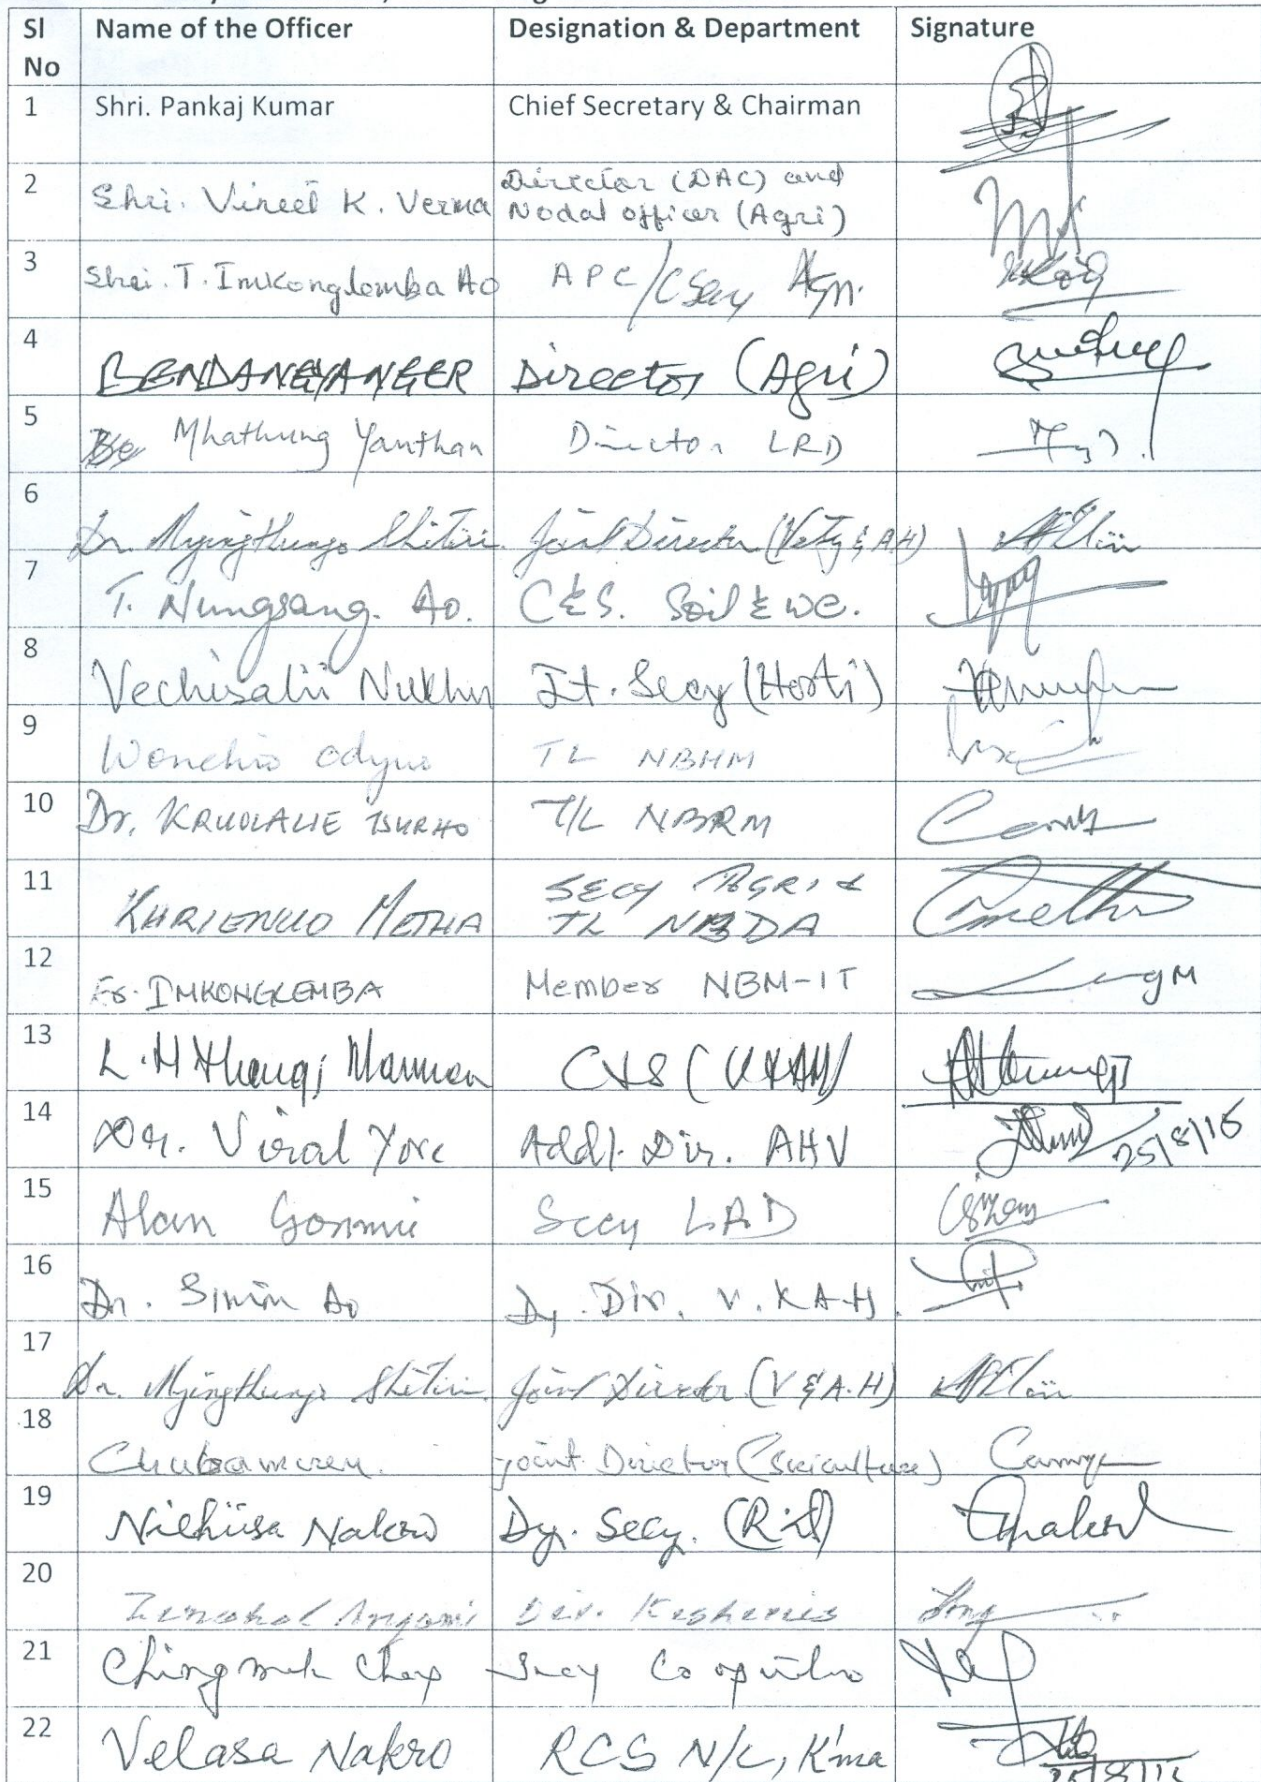 Sl No Name of the Officer Designation & Department Signature
1 Shri. Pankaj Kumar Chief Secretary & Chairman
2 Shri. Vineet K. Verma Director (DAC) and
Nodal officer (Agri)
3 Shri. T. Imkonglemba Ao APC/CSecy Agri.
4 BENDANGYANGER Director (Agri)
5 Mhathung Yanthan Director LRD
6 Dr. Myingthungo Shitiri Joint Director (Vety & AH)
7 T. Nungsang. Ao. C & S. Soil & WC.
8 Vechisalü Nukhu Jt. Secy (Horti)
9 TL NBHM
10 Dr. T/L NBRM
11 KHRIENUO METHA SECY AGRI &
TL NBDA
12 Er. IMKONGLEMBA Member NBM-IT
13 L. H Thangi Mannen C & S (V & AH)
14 Dr. Viral Yore Addl. Dir. AHV 25/8/16
15 Alan Gonmei Secy LAD
16 Dr. Simin Ao Dy. Dir. V. & A.H.
17 Dr. Myingthungo Shitiri Joint Director (V & A.H)
18 Chubameren. Joint Director (Sericulture)
19 Niehüsa Nakro Dy. Secy. (RD)
20 Angami Dir.
21 Chingmak Chang Secy
22 Velasa Nakro RCS N/L, K'ma